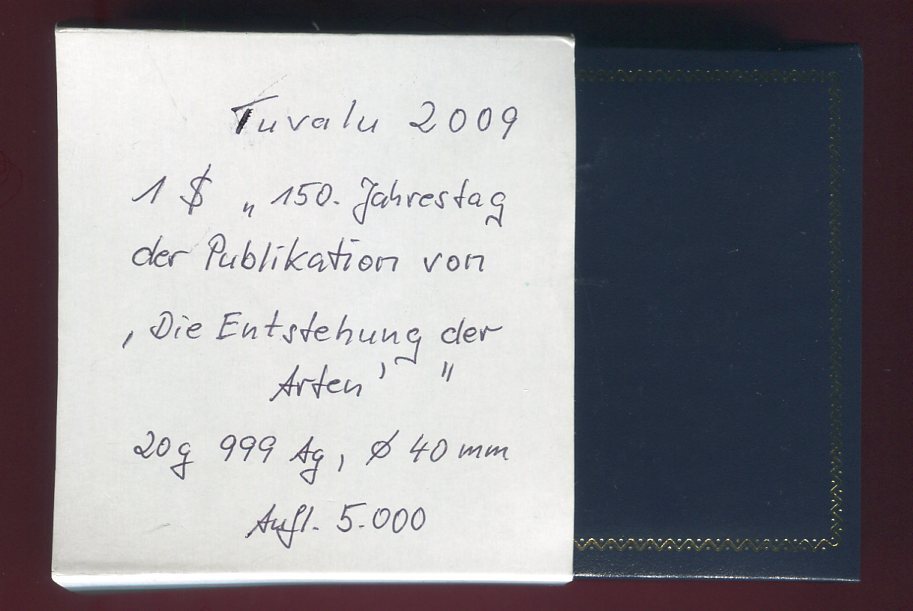 Tuvalu 2009
1 $ „ 150. Jahrestag
der Publikation von
‚Die Entstehung der
Arten' "
20g 999 Ag, Ø 40 mm
Aufl. 5.000